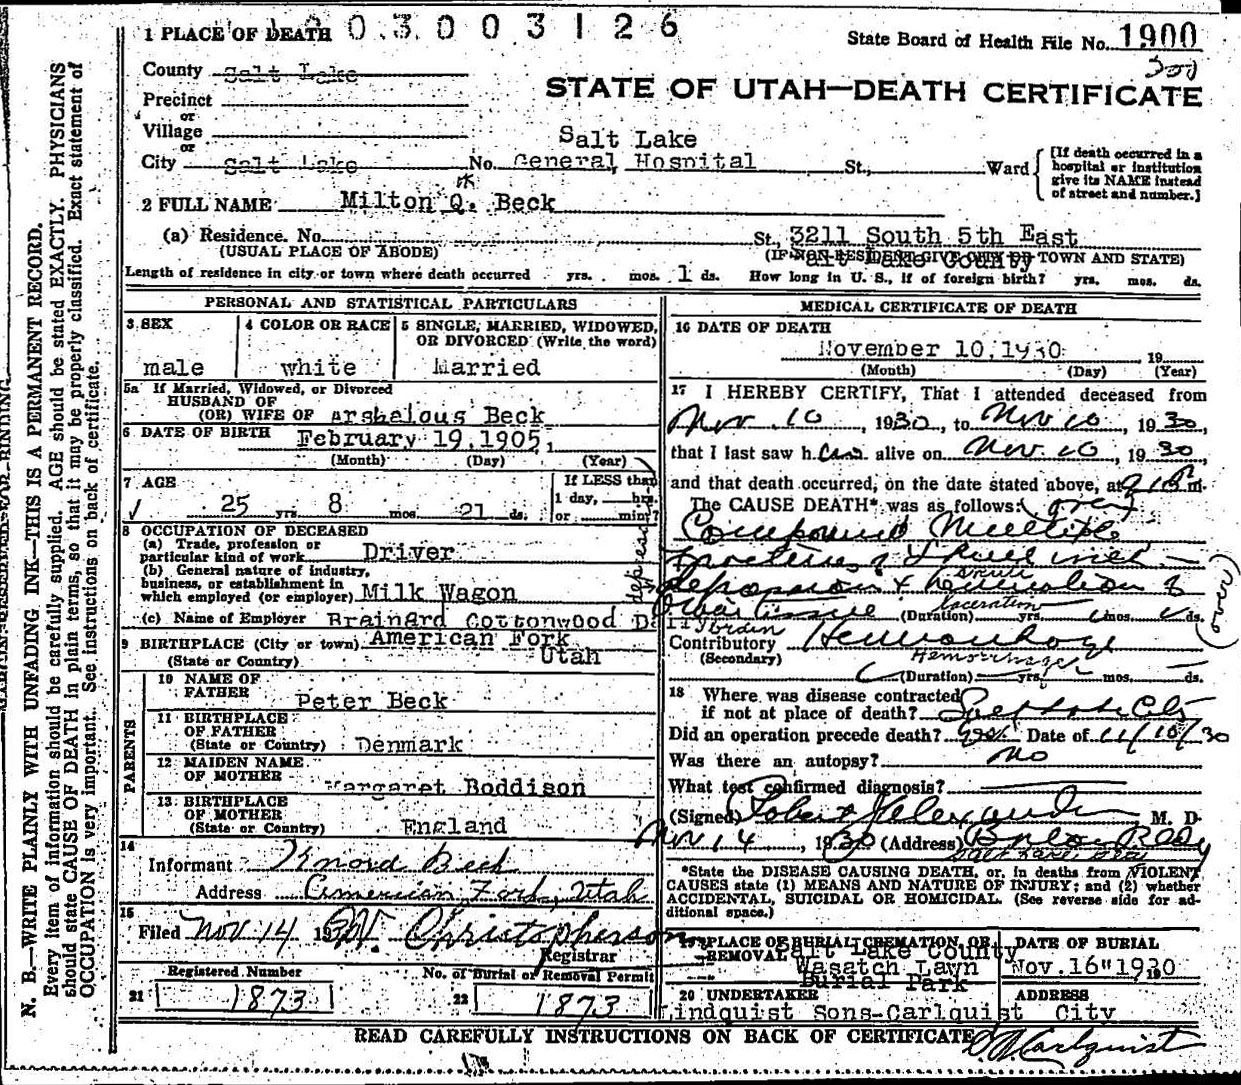 1 PLACE OF DEATH 03003126
State Board of Health File No. 1900
County Salt Lake
STATE OF UTAH—DEATH CERTIFICATE
Precinct
or
Village
or
Salt Lake
City Salt Lake No. General Hospital St., Ward
[If death occurred in a
hospital or institution
give its NAME instead
of street and number.]
2 FULL NAME Milton Q. Beck
(a) Residence. No. St., 3211 South 5th East
(USUAL PLACE OF ABODE) (IF NON-RESIDENT GIVE CITY OR TOWN AND STATE)
Salt Lake County
Length of residence in city or town where death occurred yrs. mos. 1 ds. How long in U. S., if of foreign birth? yrs. mos. ds.
PERSONAL AND STATISTICAL PARTICULARS
3 SEX
male
4 COLOR OR RACE
white
5 SINGLE, MARRIED, WIDOWED,
OR DIVORCED (Write the word)
Married
5a If Married, Widowed, or Divorced
HUSBAND OF
(OR) WIFE OF Arshalous Beck
6 DATE OF BIRTH February 19, 1905,
(Month) (Day) (Year)
7 AGE
25 yrs. 8 mos. 21 ds.
If LESS than
1 day, hrs.
or min.?
8 OCCUPATION OF DECEASED
(a) Trade, profession or
particular kind of work Driver
(b) General nature of industry,
business, or establishment in
which employed (or employer) Milk Wagon
(c) Name of Employer Brainard Cottonwood Dairy
9 BIRTHPLACE (City or town) American Fork
(State or Country) Utah
PARENTS
10 NAME OF
FATHER Peter Beck
11 BIRTHPLACE
OF FATHER
(State or Country) Denmark
12 MAIDEN NAME
OF MOTHER Margaret Boddison
13 BIRTHPLACE
OF MOTHER
(State or Country) England
14
Informant Beck
Address American Fork, Utah
15
Filed Nov 14 19 Christopherson
Registrar
Registered Number
21 1873
No. of Burial or Removal Permit
22 1873
MEDICAL CERTIFICATE OF DEATH
16 DATE OF DEATH
November 10, 1930 19
(Month) (Day) (Year)
17 I HEREBY CERTIFY, That I attended deceased from
Nov. 10, 1930, to Nov 10, 1930,
that I last saw h alive on Nov 10, 1930,
and that death occurred, on the date stated above, at m.
The CAUSE DEATH* was as follows: (over)
Compound Multiple
fractures of skull with
depression & laceration of
brain tissue (Duration) yrs. mos. ds.
depress
laceration
(over)
Contributory Hemorrhage
(Secondary) Hemorrhage
(Duration) yrs. mos. ds.
18 Where was disease contracted
if not at place of death? Salt Lake City
Did an operation precede death? yes. Date of 11/10/30
Was there an autopsy? No
What test confirmed diagnosis?
(Signed) Robert Alexander M. D.
Nov 14, 1930 (Address)
*State the DISEASE CAUSING DEATH, or, in deaths from VIOLENT
CAUSES state (1) MEANS AND NATURE OF INJURY; and (2) whether
ACCIDENTAL, SUICIDAL OR HOMICIDAL. (See reverse side for ad-
ditional space.)
19 PLACE OF BURIAL, CREMATION, OR
REMOVAL Salt Lake County
Wasatch Lawn
Burial Park
DATE OF BURIAL
Nov. 16" 1930
20 UNDERTAKER
Lindquist Sons-Carlquist
ADDRESS
City
READ CAREFULLY INSTRUCTIONS ON BACK OF CERTIFICATE
Carlquist
N. B.—WRITE PLAINLY WITH UNFADING INK—THIS IS A PERMANENT RECORD.
Every item of information should be carefully supplied. AGE should be stated EXACTLY. PHYSICIANS
should state CAUSE OF DEATH in plain terms, so that it may be properly classified. Exact statement of
OCCUPATION is very important. See instructions on back of certificate.
MARGIN RESERVED FOR BINDING